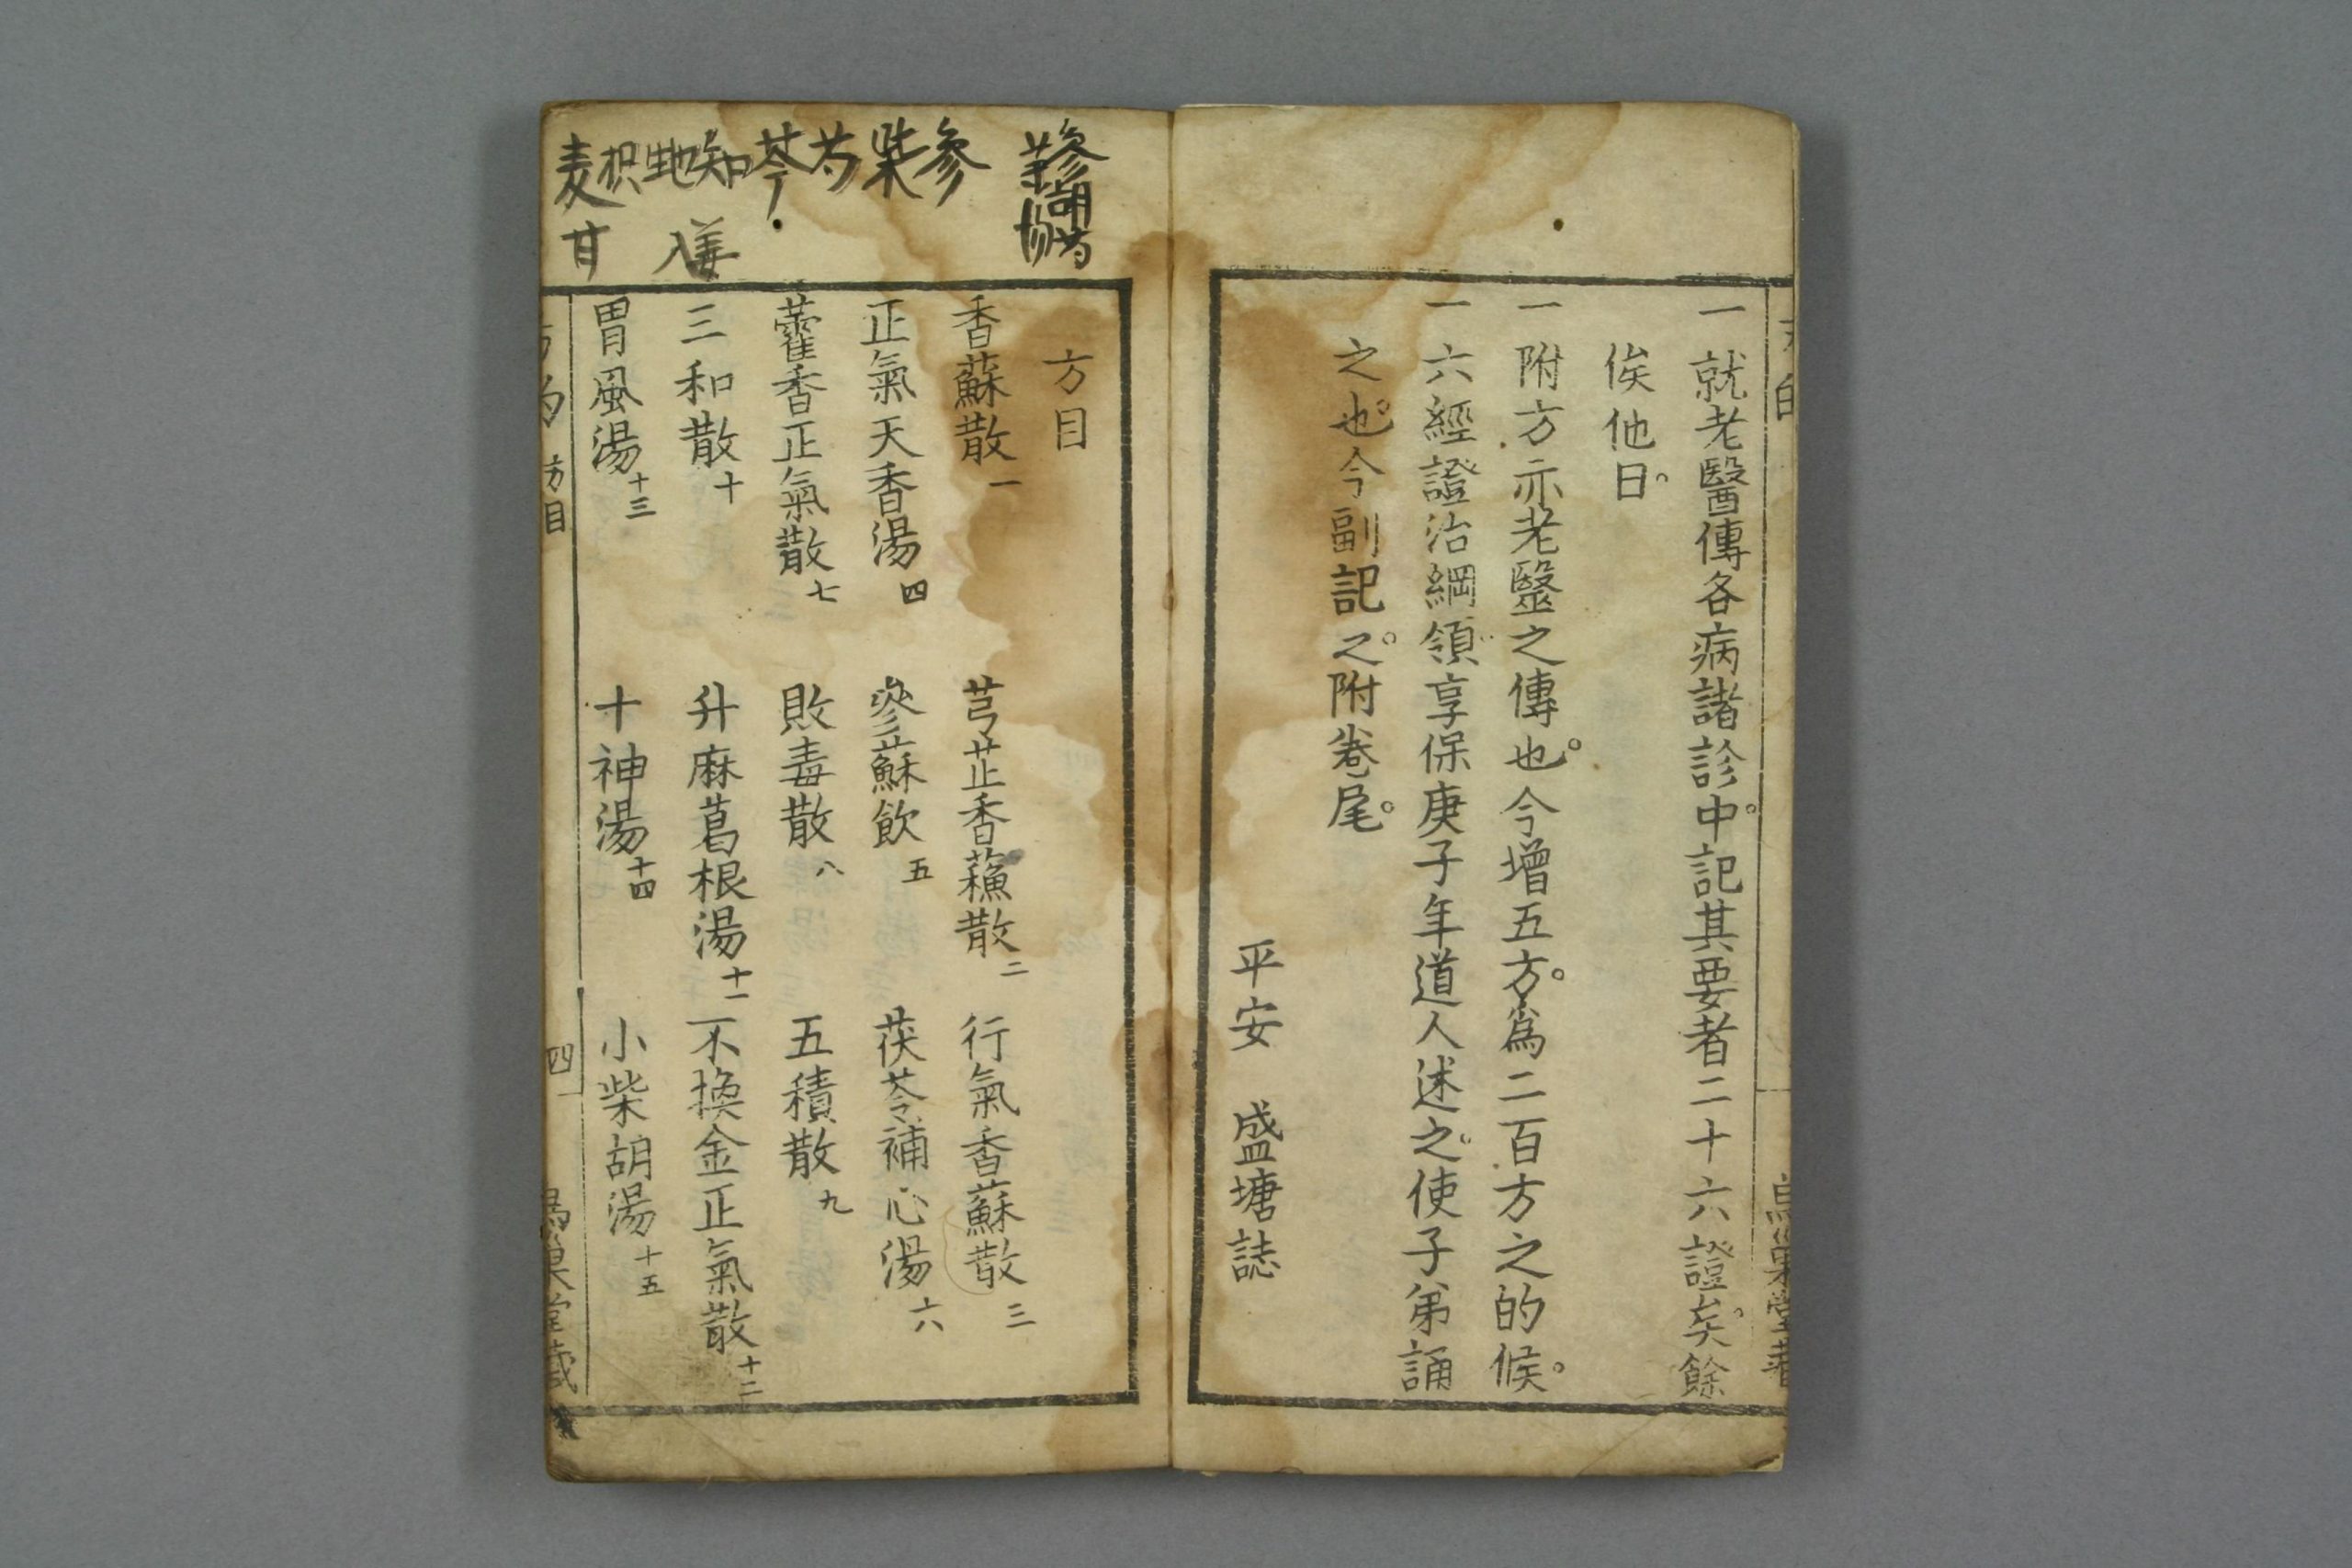 一就老醫傳各病諸診中。記其要者二十六證矣。餘
俟他日。
一附方亦老醫之傳也。今增五方。爲二百方之的候。
一六經證治綱領享保庚子年道人述之。使子弟誦
之也。今副記之。附卷尾。
平安　盛塘誌
方目
香蘇散一　芎芷香蘓散二　行氣香蘇散三
正氣天香湯四　參蘇飲五　茯苓補心湯六
藿香正氣散七　敗毒散八　五積散九
三和散十　升麻葛根湯十一　不換金正氣散十二
胃風湯十三　十神湯十四　小柴胡湯十五
方目
四
巢堂藏
參柴芍芩知地枳麦
甘
姜入